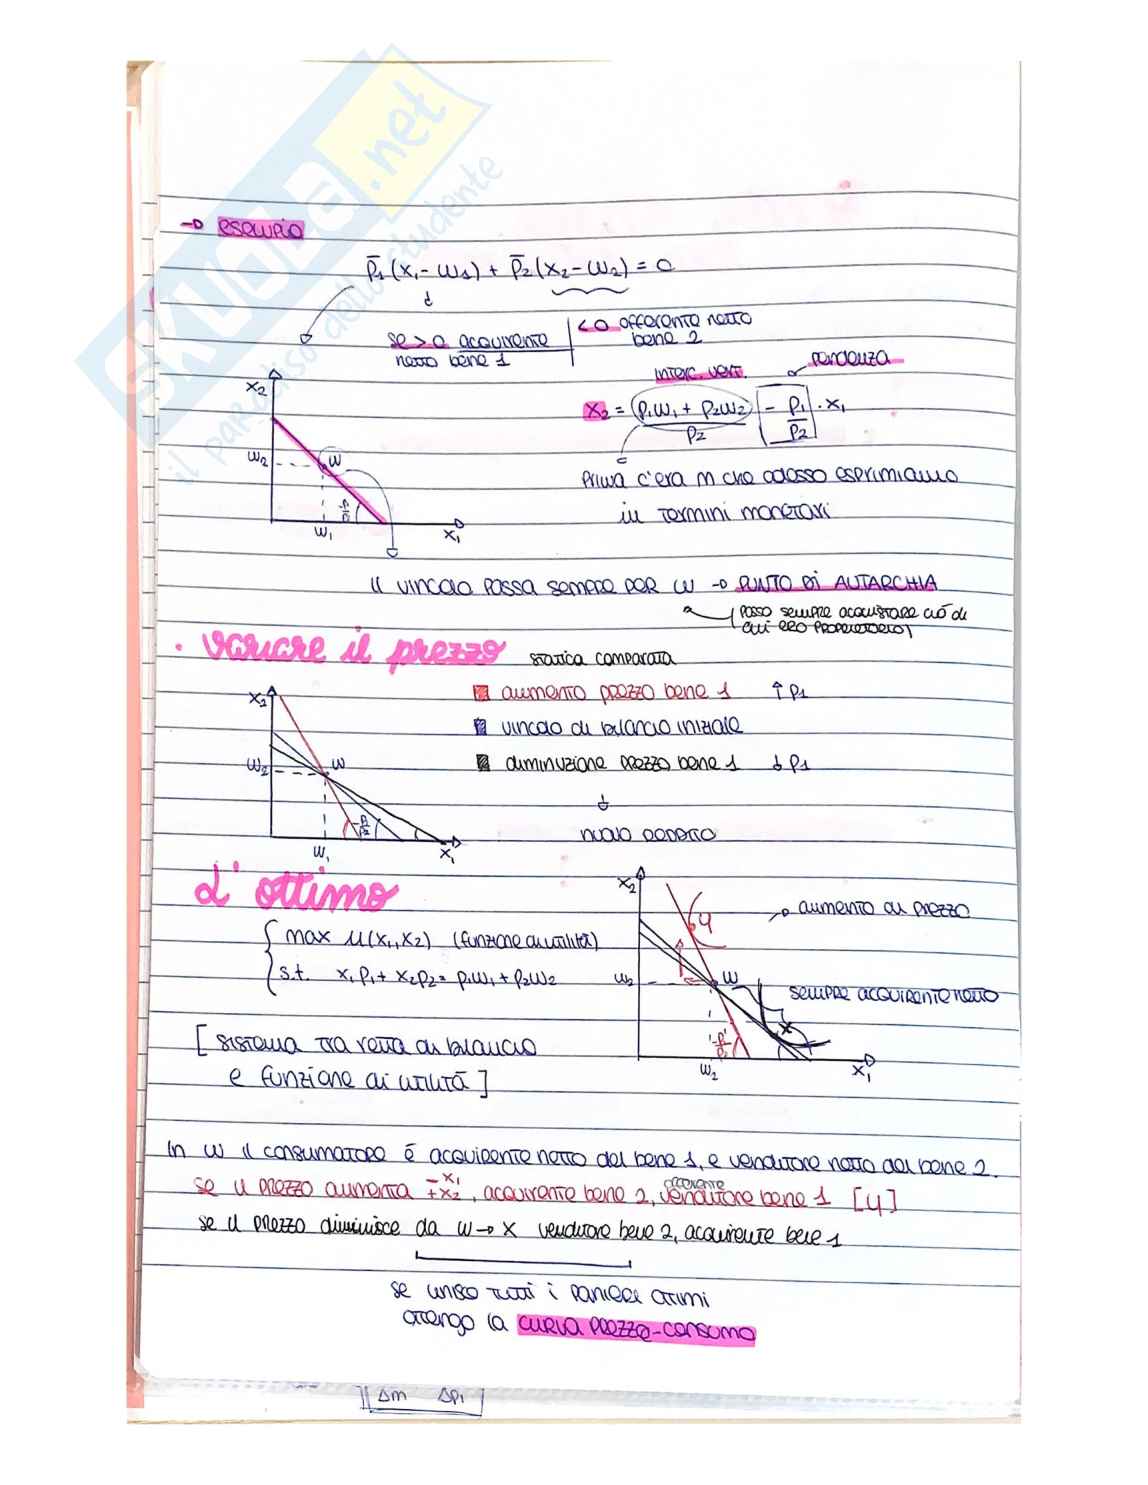 SKUOLA.net
il paradiso dello studente
→ esempio
p̄1(x1-ω1) + p̄2(x2-ω2) = 0
se > 0 acquirente netto bene 1
< 0 offerente netto bene 2
interc. vert.
pendenza
x2 = (p1ω1 + p2ω2)/p2 - p1/p2 · x1
x2
ω2
ω
-p1/p2
ω1
x1
Prima c'era m che adesso esprimiamo
in termini monetari
Il vincolo passa sempre per ω → PUNTO DI AUTARCHIA
(posso sempre acquistare ciò di
cui ero proprietario)
· variare il prezzo statica comparata
aumento prezzo bene 1 ↑ p1
vincolo di bilancio iniziale
diminuzione prezzo bene 1 ↓ p1
nuovo reddito
x2
ω2
ω
-p1/p2
ω1
x1
L'ottimo
max u(x1,x2) (funzione di utilità)
s.t. x1p1 + x2p2 = p1ω1 + p2ω2
[ sistema tra retta di bilancio
e funzione di utilità ]
x2
y
aumento di prezzo
ω2
ω
sempre acquirente netto
x
-p1'/p2
ω2
x1
In ω il consumatore è acquirente netto del bene 1, e venditore netto del bene 2.
se il prezzo aumenta -x1 +x2, acquirente bene 2, venditore bene 1 [y]
offerente
se il prezzo diminuisce da ω → x venditore bene 2, acquirente bene 1
se unisco tutti i panieri ottimi
ottengo la curva prezzo-consumo
Δm Δp1